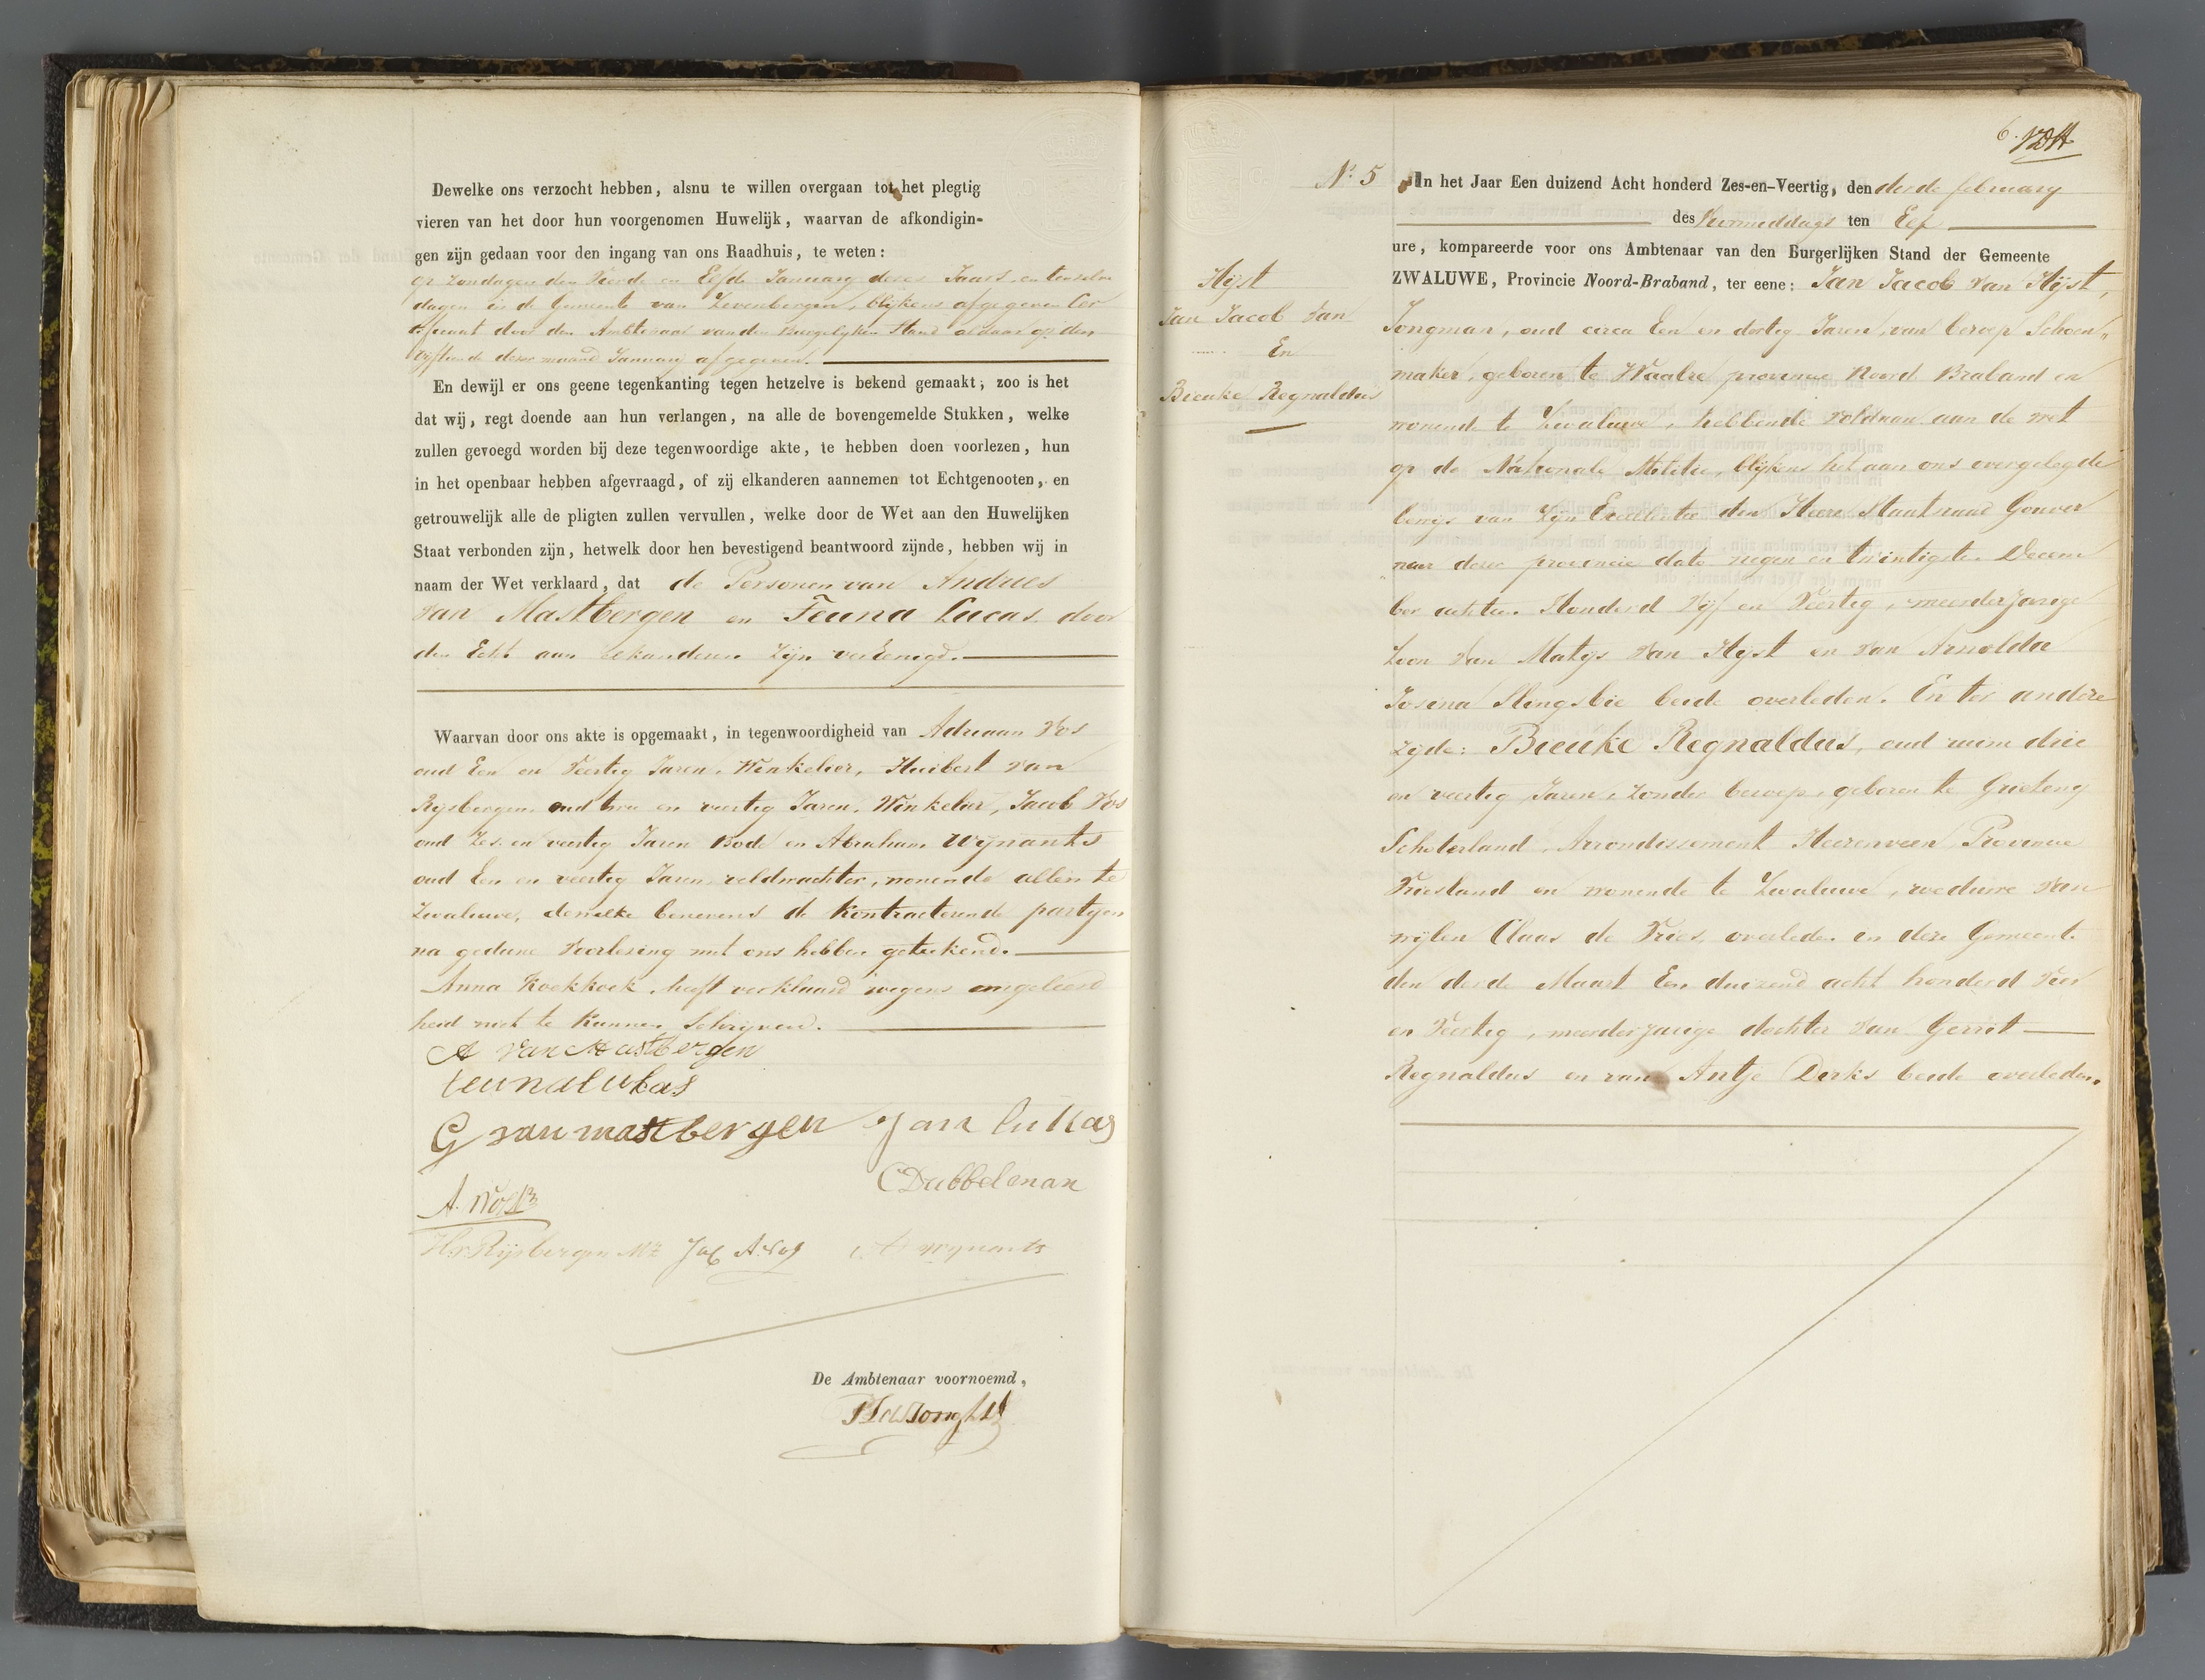 Dewelke ons verzocht hebben, alsnu te willen overgaan tot het plegtig
vieren van het door hun voorgenomen Huwelijk, waarvan de afkondigin-
gen zijn gedaan voor den ingang van ons Raadhuis, te weten:
op Zondagen den Vierde en Elfde Januarij dezes Jaars, en tenzelve
dagen in de Gemeente van Zevenbergen, blijkens afgegeven Cer
tificaat door den Ambtenaar van den Burgelyken Stand aldaar op den
vijftiende dezer maand Januarij afgegeven.
En dewijl er ons geene tegenkanting tegen hetzelve is bekend gemaakt; zoo is het
dat wij, regt doende aan hun verlangen, na alle de bovengemelde Stukken, welke
zullen gevoegd worden bij deze tegenwoordige akte, te hebben doen voorlezen, hun
in het openbaar hebben afgevraagd, of zij elkanderen aannemen tot Echtgenooten, en
getrouwelijk alle de pligten zullen vervullen, welke door de Wet aan den Huwelijken
Staat verbonden zijn, hetwelk door hen bevestigend beantwoord zijnde, hebben wij in
naam der Wet verklaard, dat de Personen van Andries
van Mastbergen en Teuna Lucas door
den Echt aan elkanderen Zijn vereenigd.
Waarvan door ons akte is opgemaakt, in tegenwoordigheid van Adriaan Vos
oud Een en Veertig Jaren, Winkelier, Huibert van
Rysbergen oud twee en veertig Jaren, Winkelier, Jacob Vos
oud Zes en veertig Jaren Bode en Abraham Wijnants
oud Een en veertig Jaren veldwachter, wonende allen te
Zwaluwe, dewelke benevens de Kontracterende partyen
na gedane Voorlezing met ons hebben geteekend.
Anna Koekkoek heeft verklaard wegens ongeleerd
heid niet te kunnen Schrijven.
A van Mastbergen
teunalukas
G van mastbergen Jan lukas
C Dubbelman
A. Vos
H v Rijsbergen Mz Jac A. Vos A wynants
De Ambtenaar voornoemd,
6.
No 5 In het Jaar Een duizend Acht honderd Zes-en-Veertig, den derde february
des Voormiddags ten Elf
ure, kompareerde voor ons Ambtenaar van den Burgerlijken Stand der Gemeente
ZWALUWE, Provincie Noord-Braband, ter eene: Jan Jacob van Hijst,
Hijst
Jan Jacob van
En
Bieuke Regnaldus
Jongman, oud circa Een en dertig Jaren, van beroep Schoen„
maker, geboren te Waalre provincie Noord Braband en
wonende te Zwaluwe, hebbende voldaan aan de wet
op de Nationale Militie, blijkens het aan ons overgelegde
bewijs van Zijn Excellentie den Heere Staatsraad Gouver
neur dezer provincie dato negen en twintigste Decem
ber achttien Honderd Vijf en Veertig, meerderjarige
Zoon van Matijs van Hyst en van Arnolda
Josina Slingsbie beide overleden. En ter andere
zijde: Bieuke Regnaldus, oud ruim drie
en veertig Jaren, zonder beroep, geboren te
Schoterland, Arrondissement Heerenveen, Provincie
Friesland en wonende te Zwaluwe, weduwe van
wijlen Claas de Vries, overleden in deze Gemeente
den derde Maart Een duizend acht honderd Vier
en Veertig, meerderjarige dochter van Gerrit
Regnaldus en van Antje Derks beide overleden.